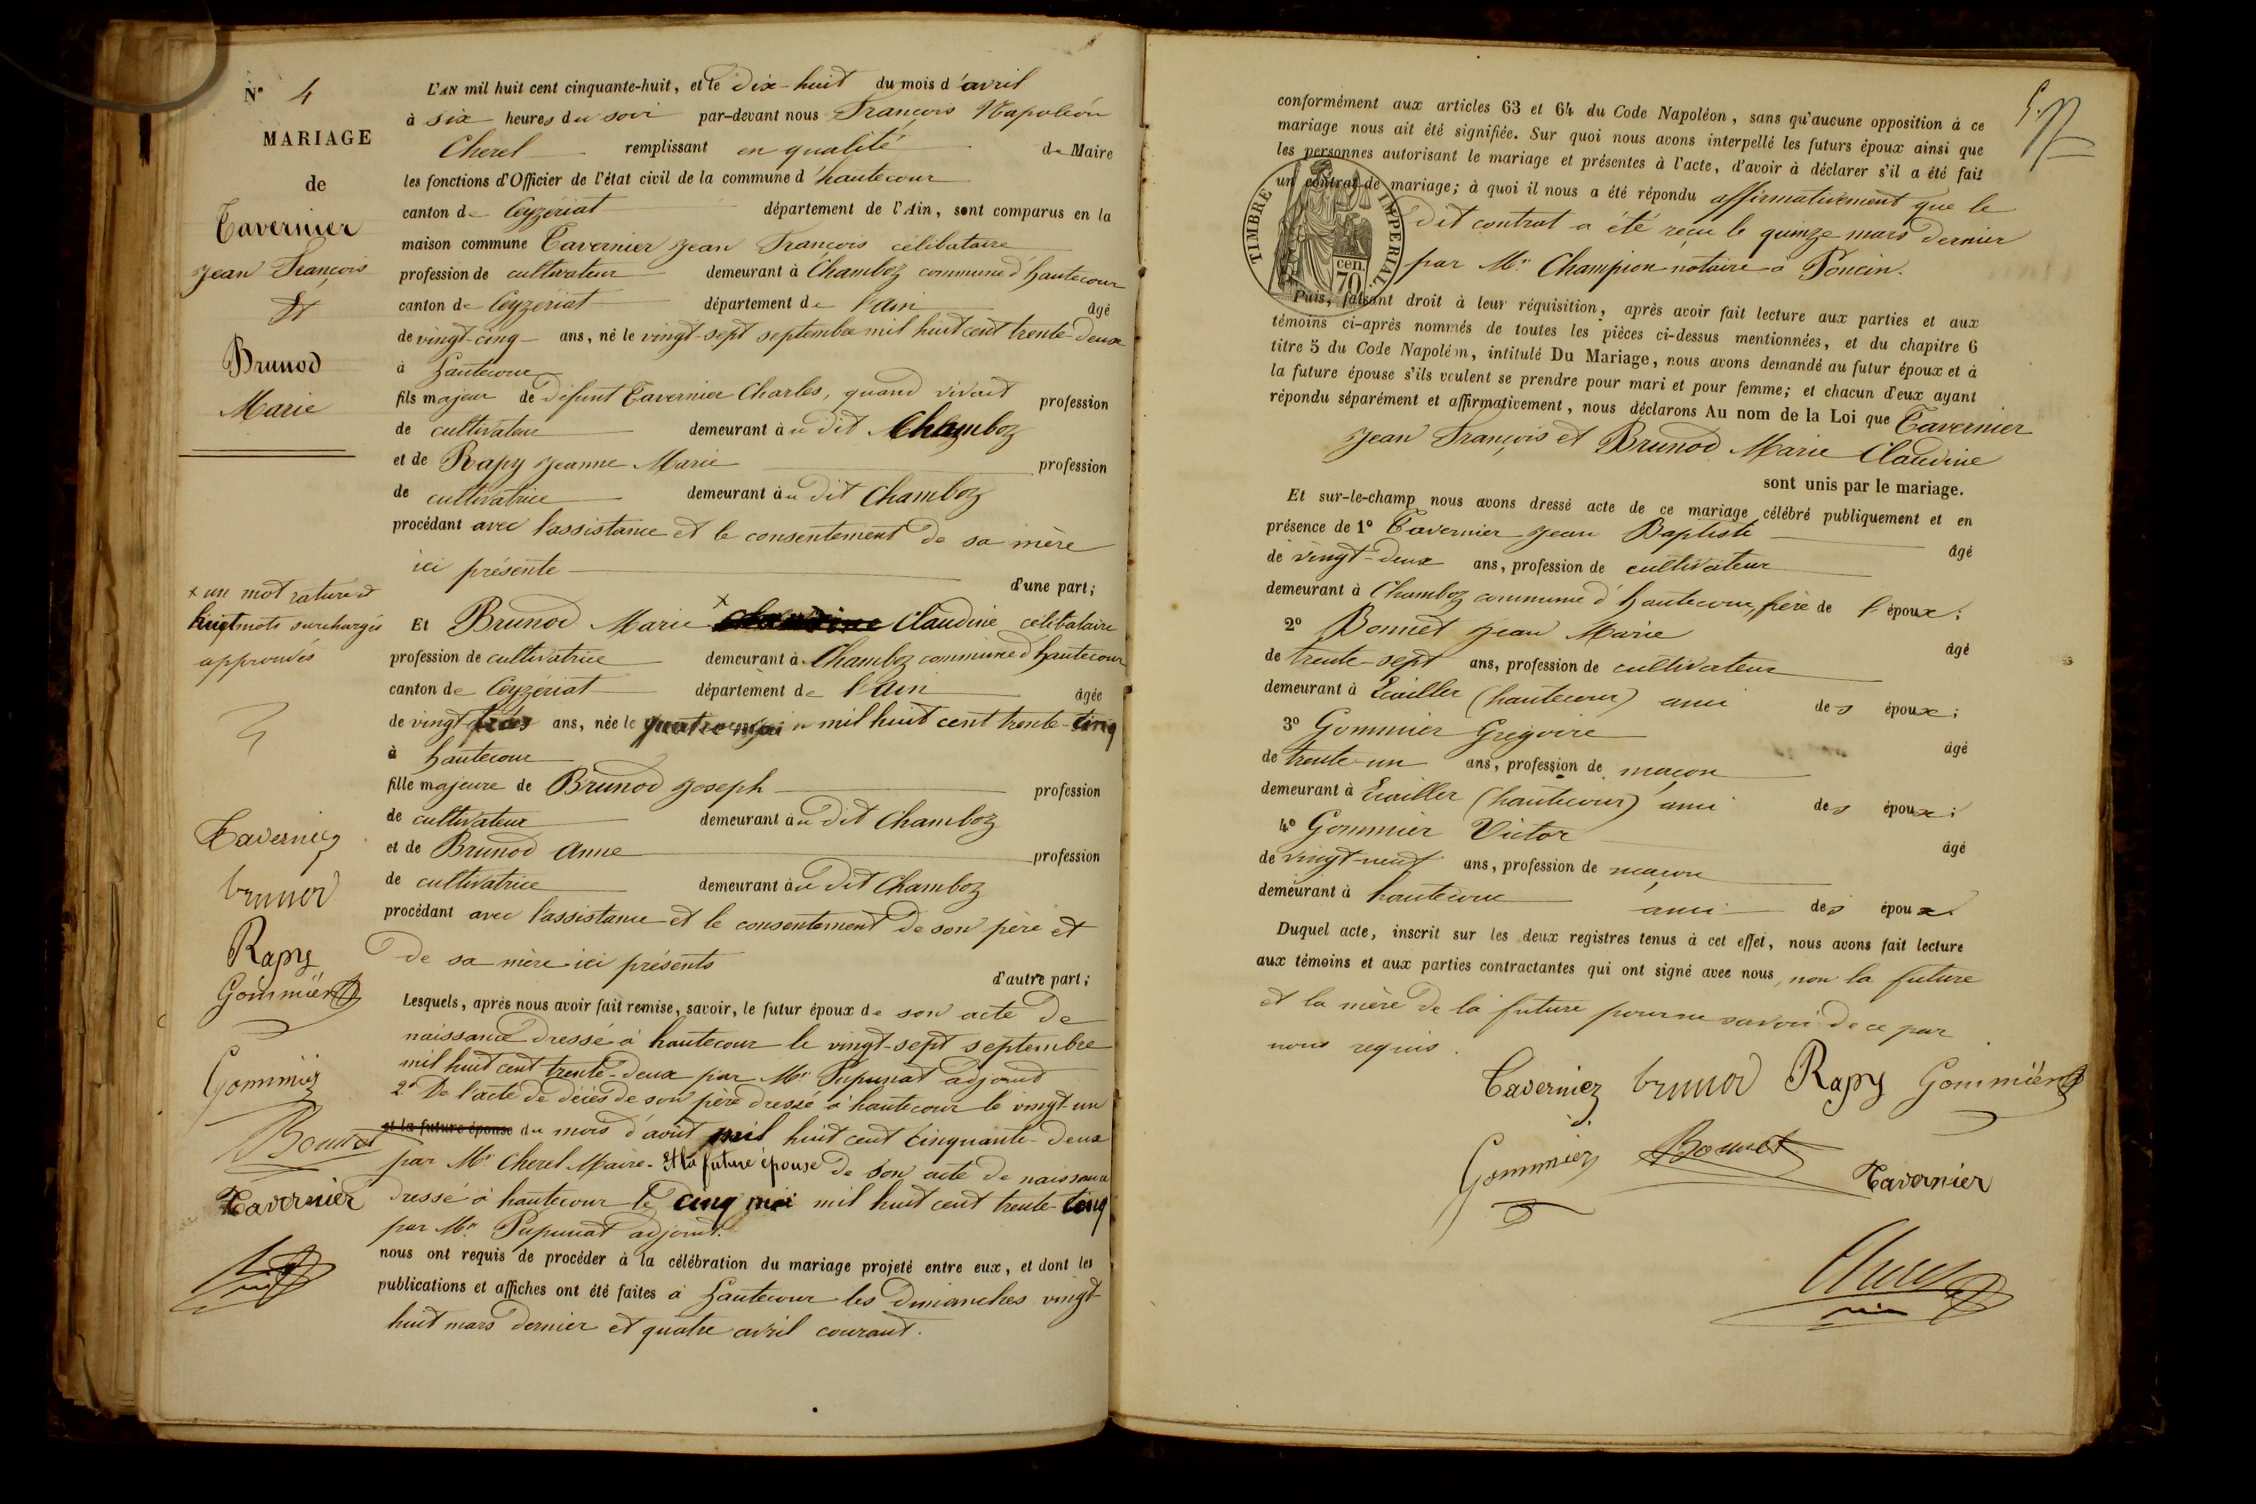 N° 4
MARIAGE
de
Tavernier
Jean François
Et
Brunod
Marie
L'AN mil huit cent cinquante-huit, et le dix-huit du mois d'avril
à six heures du soir par-devant nous François Napoléon
Cherel remplissant en qualité de Maire
les fonctions d'Officier de l'état civil de la commune d'hautecour
canton de Ceyzériat département de l'Ain, sont comparus en la
maison commune Tavernier Jean François célibataire
profession de cultivateur demeurant à Chamboz commune d'hautecour
canton de Ceyzériat département de l'ain âgé
de vingt-cinq ans, né le vingt-sept septembre mil huit cent trente-deux
à hautecour
fils majeur de défunt Tavernier Charles, quand vivait profession
de cultivateur demeurant au dit Chamboz
et de Rapy Jeanne Marie profession
de cultivatrice demeurant au dit Chamboz
procédant avec l'assistance et le consentement de sa mère
ici présente d'une part;
x un mot raturé et
huit mots surchargés
approuvés
Et Brunod Marie x Claudine célibataire
profession de cultivatrice demeurant à Chamboz commune d'hautecour
canton de Ceyzériat département de l'ain âgée
de vingt-trois ans, née le quatre mai mil huit cent trente-cinq
à hautecour
fille majeure de Brunod Joseph profession
de cultivateur demeurant au dit Chamboz
et de Brunod Anne profession
de cultivatrice demeurant au dit Chamboz
procédant avec l'assistance et le consentement de son père et
de sa mère ici présents d'autre part;
Lesquels, après nous avoir fait remise, savoir, le futur époux de son acte de
naissance dressé à hautecour le vingt-sept septembre
mil huit cent trente-deux par Mr Pupunat adjoint
2° De l'acte de décès de son père dressé à hautecour le vingt-un
et la future épouse du mois d'août mil huit cent cinquante-deux
par Mr Cherel Maire. Et la future épouse de son acte de naissance
dressé à hautecour le cinq mai mil huit cent trente-cinq
par Mr Pupunat adjoint.
nous ont requis de procéder à la célébration du mariage projeté entre eux, et dont les
publications et affiches ont été faites à hautecour les dimanches vingt-
huit mars dernier et quatre avril courant.
Tavernier
brunod
Rapy
Gommier
Gommier
Bonnet
Tavernier
conformément aux articles 63 et 64 du Code Napoléon, sans qu'aucune opposition à ce
mariage nous ait été signifiée. Sur quoi nous avons interpellé les futurs époux ainsi que
les personnes autorisant le mariage et présentes à l'acte, d'avoir à déclarer s'il a été fait
un contrat de mariage; à quoi il nous a été répondu affirmativement que le
dit contrat a été reçu le quinze mars dernier
par Mr Champion notaire à Poncin.
TIMBRE IMPERIAL
cen. 70
Puis, faisant droit à leur réquisition, après avoir fait lecture aux parties et aux
témoins ci-après nommés de toutes les pièces ci-dessus mentionnées, et du chapitre 6
titre 5 du Code Napoléon, intitulé Du Mariage, nous avons demandé au futur époux et à
la future épouse s'ils veulent se prendre pour mari et pour femme; et chacun d'eux ayant
répondu séparément et affirmativement, nous déclarons Au nom de la Loi que Tavernier
Jean François et Brunod Marie Claudine
sont unis par le mariage.
Et sur-le-champ nous avons dressé acte de ce mariage célébré publiquement et en
présence de 1° Tavernier Jean Baptiste âgé
de vingt-deux ans, profession de cultivateur
demeurant à Chamboz commune d'hautecour, frère de l'époux;
2° Bonnet Jean Marie âgé
de trente-sept ans, profession de cultivateur
demeurant à Evailler (hautecour) ami des époux;
3° Gommier Grégoire âgé
de trente-un ans, profession de maçon
demeurant à Evailler (hautecour) ami des époux;
4° Gommier Victor âgé
de vingt-neuf ans, profession de maçon
demeurant à hautecour ami des époux.
Duquel acte, inscrit sur les deux registres tenus à cet effet, nous avons fait lecture
aux témoins et aux parties contractantes qui ont signé avec nous, non la future
et la mère de la future pour ne savoir de ce par
nous requis.
Tavernier brunod Rapy Gommier
Gommier Bonnet Tavernier
Cherel